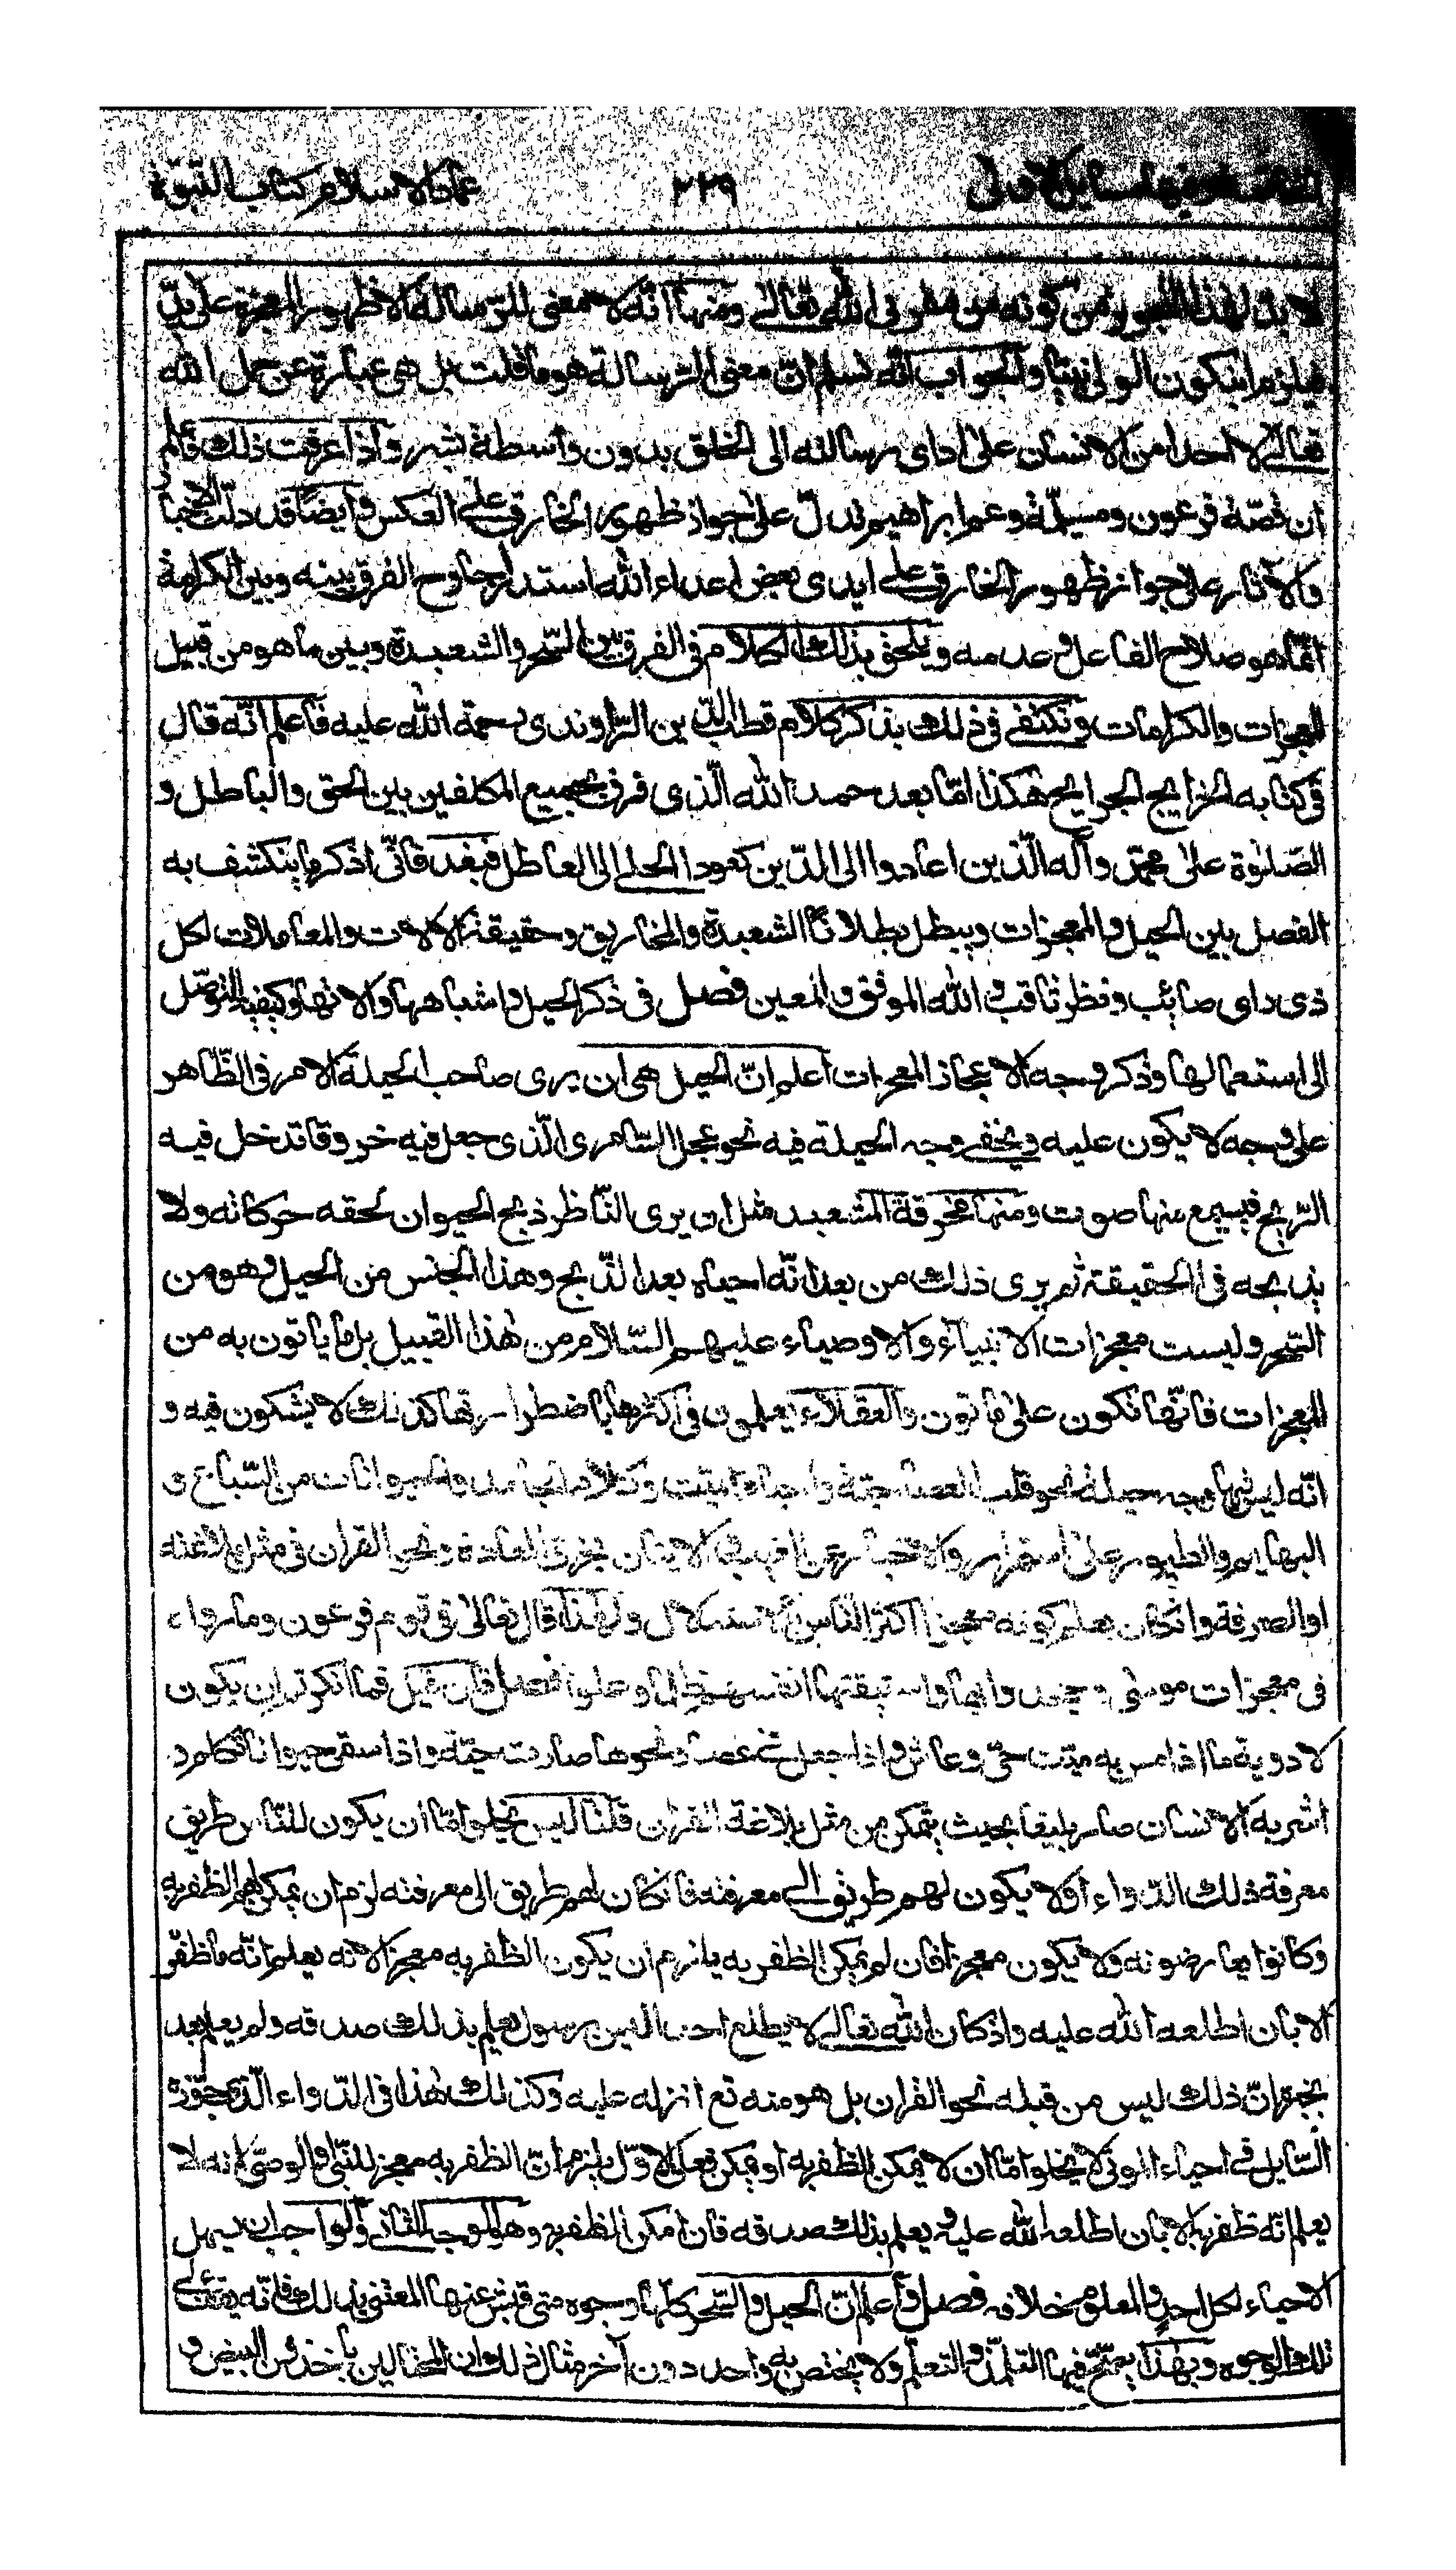 عماد الاسلام كتاب النبوة ٢٢٩
لا بد لهذا من كونه من الله تعالى ومنها انّه لا معنى للرسالة الا ظهور المعجزة على يدّ
فيلزم ان يكون الولي نبيّا والجواب انّه نسلم انّ معنى الرسالة هو ما قلت بل هي عبارة عن حمل الله
تعالى لاحد من الانسان على اداى رسالته الى الخلق بدون واسطة بشر واذا عرفت ذلك فاعلم
ان قصّة فرعون ومسيلمة وعم ابراهيم تدلّ على جواز ظهور الخارق على العكس وايضًا قد دلّت الاخبار
والآثار على جواز ظهور الخارق على ايدى بعض اعداء الله استدراجا وح الفرق بينه وبين الكرامة
انّما هو صلاح الفاعل وعدمه ويلحق بذلك الكلام فى الفرق بين السّحر والشعبدة وبين ما هو من قبيل
المعجزات والكرامات ونكتفى فى ذلك بذكر كلام قطب الدّين الرّاوندى رحمة الله عليه فاعلم انّه قال
فى كتابه الخرايج الجرايح هكذا امّا بعد حمد الله الّذى فرق لجميع المكلفين بين الحق والباطل و
الصّلوة على محمّد وآله الّذين اعادوا الى الدّين كعود الحلى الى العاطل فبعد فانّى اذكر ما ينكشف به
الفصل بين الحيل والمعجزات ويبطل بطلانا الشعبدة والمخاريق وحقيقة الالات والمعاملات لكل
ذى راى صائب ونظر ثاقب والله الموفق والمعين فصل فى ذكر الحيل واشباهها وآلاتها وكيفية التوصّل
الى استعمالها وذكر وجه الاعجاز المعجزات اعلم انّ الحيل هى ان يرى صاحب الحيلة الامر فى الظّاهر
على وجه لا يكون عليه ويخفى وجه الحيلة فيه نحو عجل السّامرى الّذى جعل فيه خروقا تدخل فيه
الرّيح فيسمع منها صوت ومنها مخرقة المشعبد مثل ان يرى النّاظر ذبح الحيوان لخفه حركاته ولا
يذبحه فى الحقيقة ثم يرى ذلك من بعد انّه احياه بعد الذّبح وهذا الجنس من الحيل وهو من
السّحر وليست معجزات الانبياء والاوصياء عليهم السّلام من هذا القبيل بل ما ياتون به من
المعجزات فانّها تكون على ما ياتون والعقلاء يعلمون فى اكثرها باضطرار انها كذلك لا يشكون فيه و
انّه ليس فيها وجه حيلة نحو قلب العصا حيّة واحياء الميّت وكلام الجماد والحيوانات من السّباع و
البهايم والطيور على استمرار والاخبار عن الغيب والاتيان بخرق العادة ونحو القران فى مثل بلاغته
او الصرفة وان كان يعلم كونه معجزا اكثر النّاس بالاستدلال ولهذا قال تعالى فى قوم فرعون وما راوا
فى معجزات موسى وجحدوا بها واستيقنتها انفسهم ظلما وعلوا فصل فان قيل فما انكرتم ان يكون
لادوية ما اذا مس به ميّت حىّ وعاش واذا جعل فى عصا ونحوها صارت حيّة واذا سقى حيوانا تكلم و
اشربه الانسان صار بليغا بحيث يتمكن من مثل بلاغة القران قلنا ليس يخلو امّا ان يكون للنّاس طريق
معرفة ذلك الدّواء او لا يكون لهم طريق الى معرفته فان كان لهم طريق الى معرفته لزم ان يمكنهم الظفر به
وكانوا يعارضونه ولا يكون معجزا فان لم يمكن الظفر به يلزم ان يكون الظفر به معجزا لانه يعلم انّه ما ظفر
الا بان اطلعه الله عليه واذ كان الله تعالى لا يطلع احدا ليس برسول يعلم بذلك صدقه ولم يعلم بعد
بخبره انّ ذلك ليس من قبله نحو القران بل هو منه تع انزله عليه وكذلك هذا فى الدّواء الّذى جوّزه
السّايل فى احياء الموتى لا يخلو امّا ان لا يمكن الظفر به او يمكن فعلى الاوّل يلزم انّ الظفر به معجز للنّبى والوصىّ لانه لا
يعلم انّه ظفر به الا بان اطلعه الله عليه يعلم بذلك صدقه فان امكن الظفر به وهو الوجه الثانى والواجب ان يسهل
الاحياء لكل احد والمعلوم خلافه فصل واعلم انّ الحيل والسّحر كلّها وجوه متى فتش عنها المعتنى بذلك فانّه يقف على
تلك الوجوه وبهذا يصحّ فيها التلمّذ والتعلّم ولا يختص به واحد دون آخر مثال ذلك ان المحتالين ياخذون البيض و